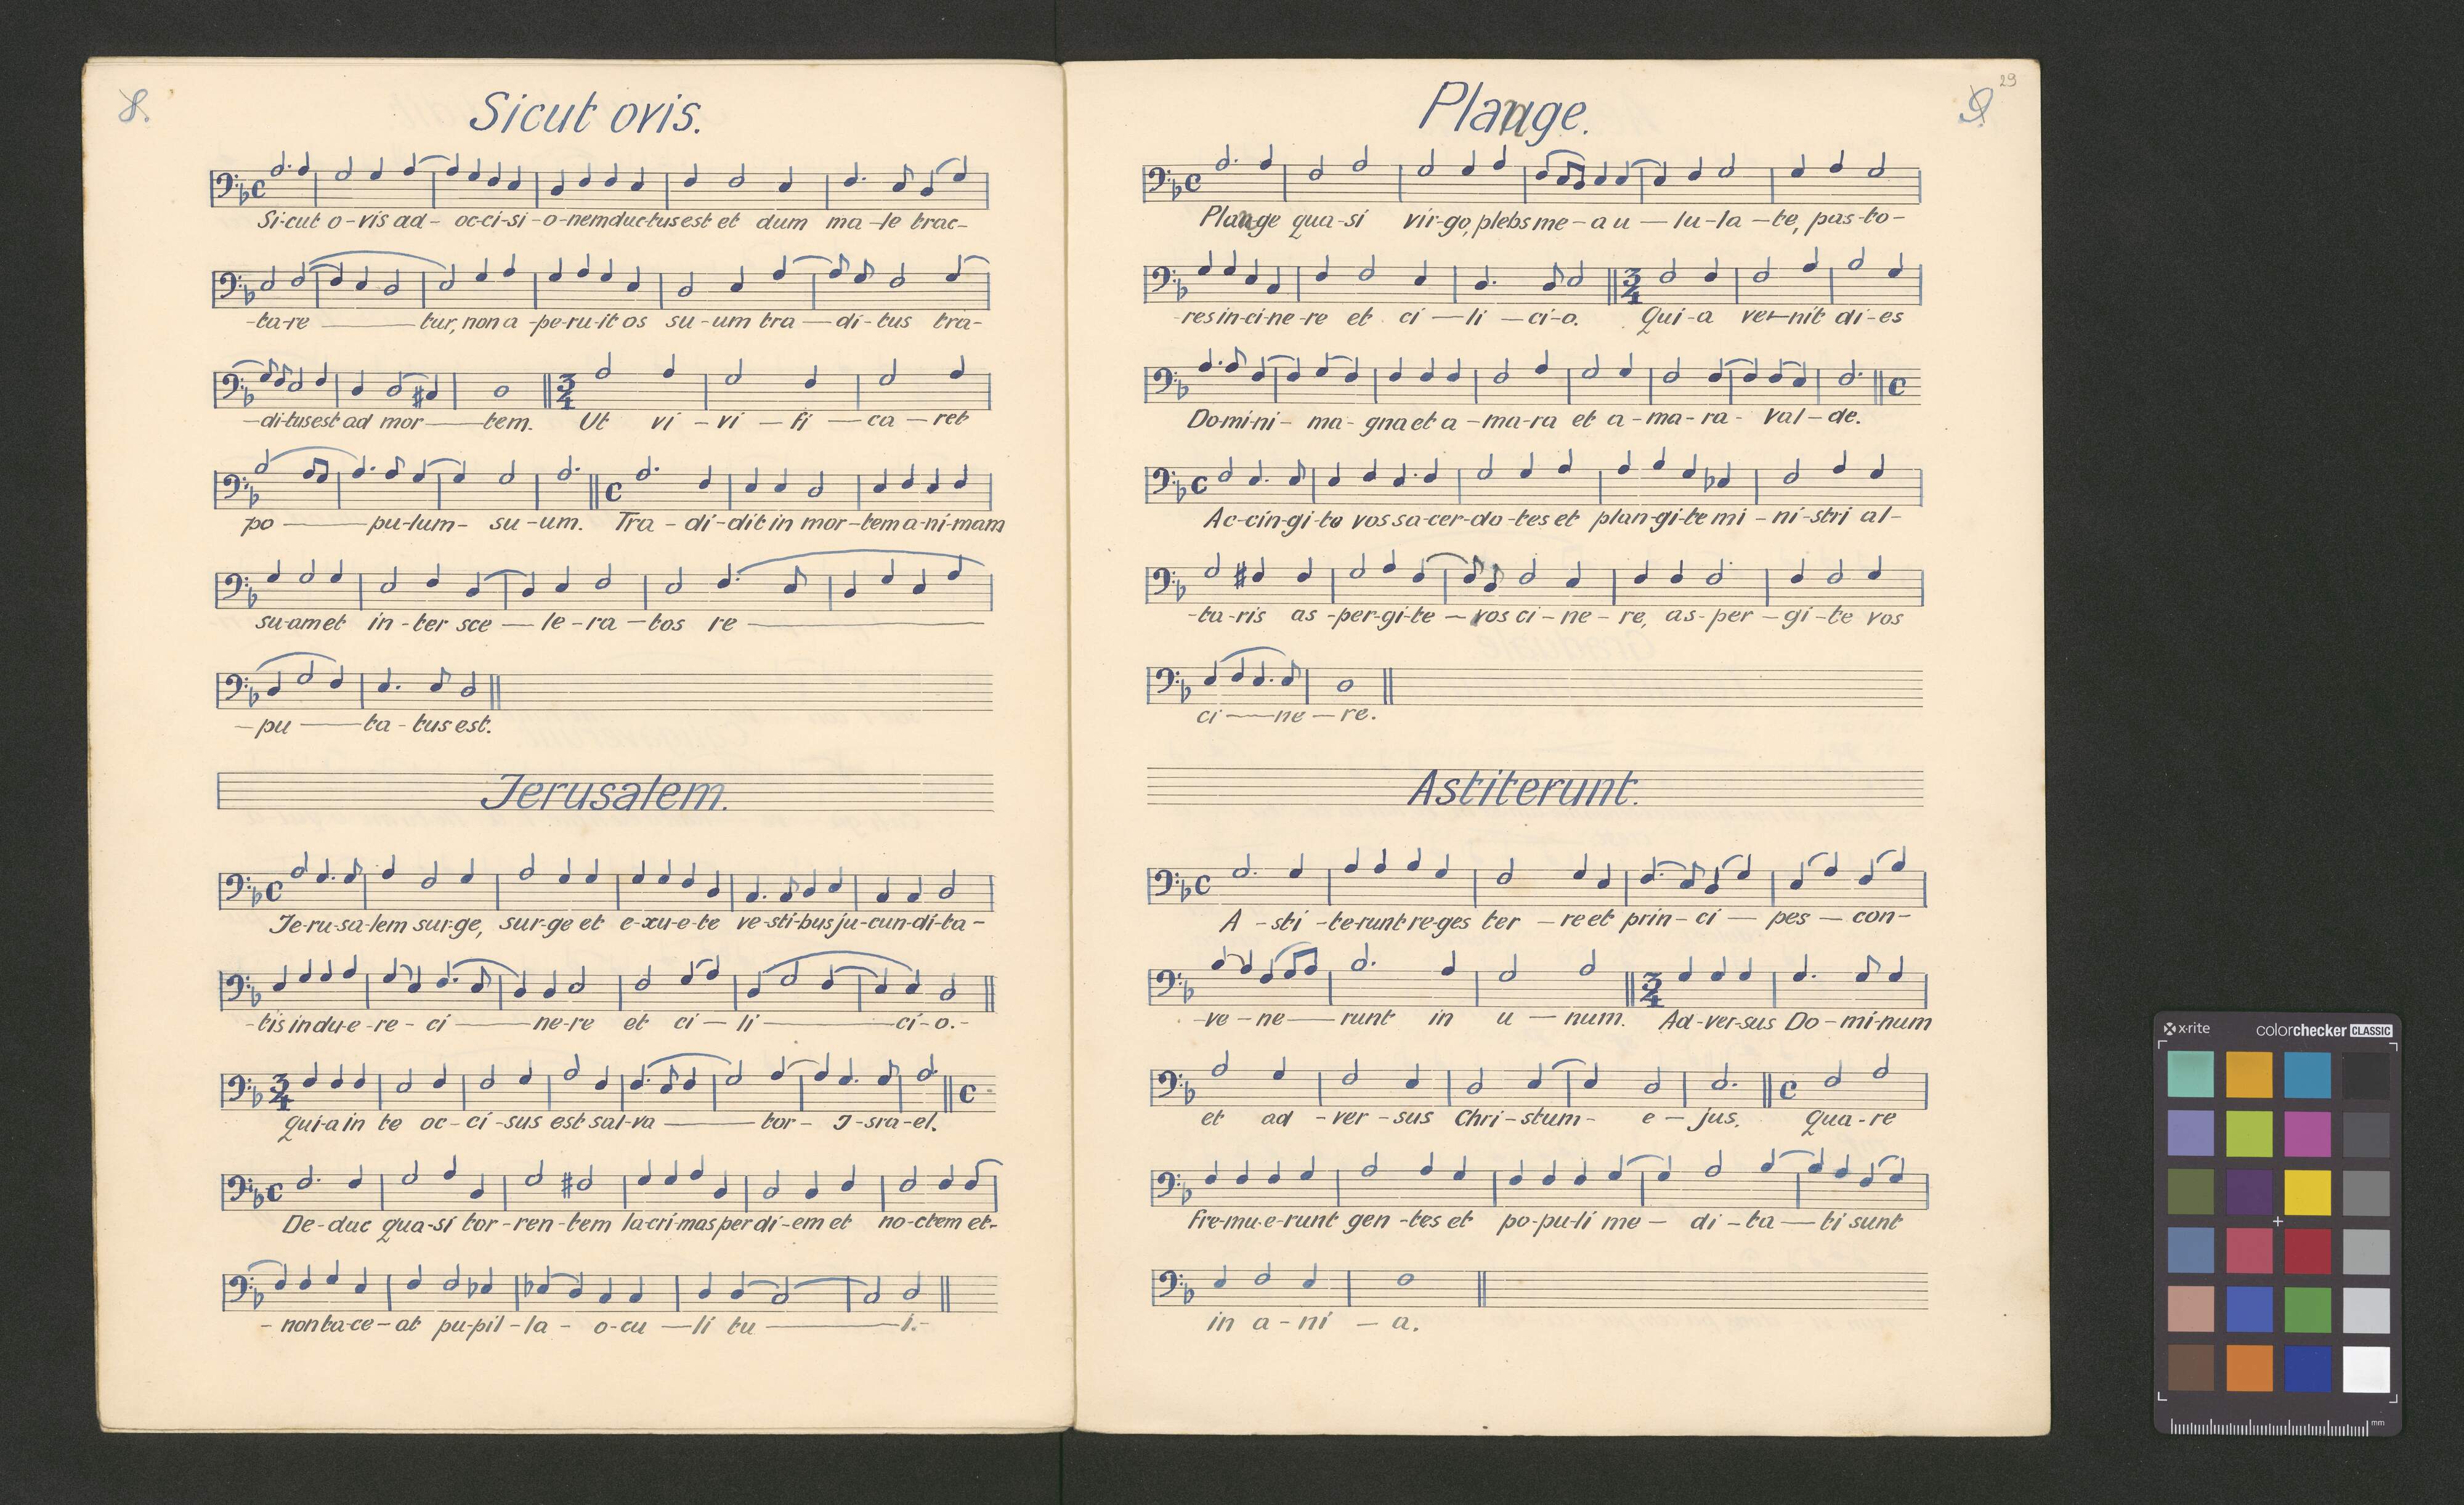 8.
Sicut ovis.
Si-cut o-vis ad- oc-ci-si-o-nem ductus est et dum ma-le trac-
-ta-re tur, non a-pe-ru-it os su-um tra-di-tus tra-
-di-tus est ad mor-tem. Ut vi-vi-fi-ca-ret
po-pu-lum- su-um. Tra-di-dit in mor-tem a-ni-mam
su-am et in-ter sce-le-ra-tos re-
-pu-ta-tus est.
Jerusalem.
Je-ru-sa-lem sur-ge, sur-ge et e-xu-e-te ve-sti-bus ju-cun-di-ta-
-tis indu-e-re- ci-ne-re et ci-li-ci-o.-
3/4 qui-a in te oc-ci-sus est sal-va-tor- I-sra-el.
De-duc qua-si tor-ren-tem la-cri-mas per di-em et no-ctem et-
-non ta-ce-at pu-pil-la- o-cu-li tu-i.-
29
9.
Plange.
Plange qua-si vir-go, plebs me-a u-lu-la-te, pas-to-
-res in-ci-ne-re et ci-li-ci-o. 3/4 Qui-a ve-nit di-es
Do-mi-ni- ma-gna et a-ma-ra et a-ma-ra- val-de.
Ac-cin-gi-te vos sa-cer-do-tes et plan-gi-te mi-ni-stri al-
-ta-ris as-per-gi-te-vos ci-ne-re, as-per-gi-te vos
ci-ne-re.
Astiterunt.
A-sti-te-runt re-ges ter-re et prin-ci-pes-con-
-ve-ne-runt in u-num. 3/4 Ad-ver-sus Do-mi-num
et ad-ver-sus Chri-stum- e-jus. Qua-re
fre-mu-e-runt gen-tes et po-pu-li me-di-ta-ti sunt
in a-ni-a.
x-rite colorchecker CLASSIC
mm